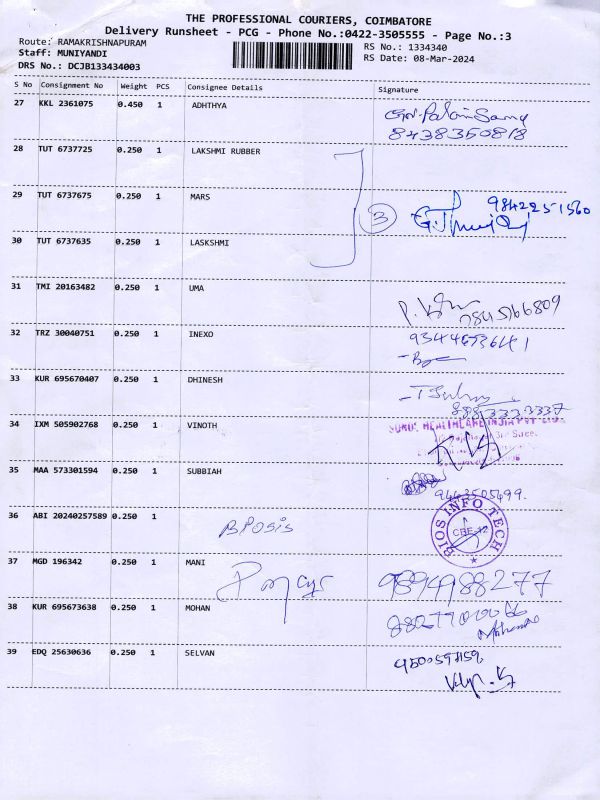 THE PROFESSIONAL COURIERS, COIMBATORE
Delivery Runsheet - PCG - Phone No.:0422-3505555 - Page No.:3
Route: RAMAKRISHNAPURAM
RS No.: 1334340
Staff: MUNIYANDI
RS Date: 08-Mar-2024
DRS No.: DCJB133434003
S No Consignment No Weight PCS Consignee Details Signature
27 KKL 2361075 0.450 1 ADHTHYA
8438350818
28 TUT 6737725 0.250 1 LAKSHMI RUBBER
29 TUT 6737675 0.250 1 MARS
3 9842251560
30 TUT 6737635 0.250 1 LASKSHMI
31 TMI 20163482 0.250 1 UMA
32 TRZ 30040751 0.250 1 INEXO
33 KUR 695670407 0.250 1 DHINESH
34 IXM 505902768 0.250 1 VINOTH
35 MAA 573301594 0.250 1 SUBBIAH
9443505499.
36 ABI 20240257589 0.250 1
BIOS INFO TECH
CBE-12
37 MGD 196342 0.250 1 MANI
9894988277
38 KUR 695673638 0.250 1 MOHAN
39 EDQ 25630636 0.250 1 SELVAN